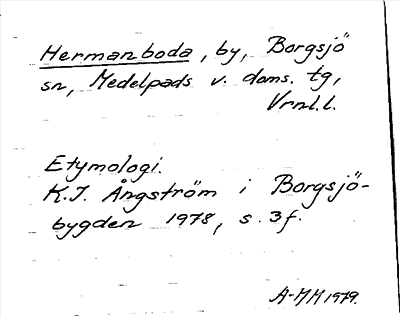 Hermanboda, by, Borgsjö
sn, Medelpads v. doms. tg,
Vrnl.l.
Etymologi.
K.J. Ångström i Borgsjö-
bygden 1978, s. 3 f.
A-MM 1979.